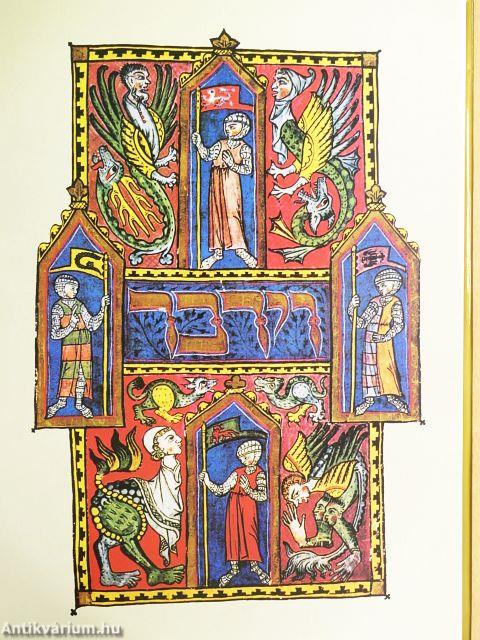 וידבר
Antikvárium.hu